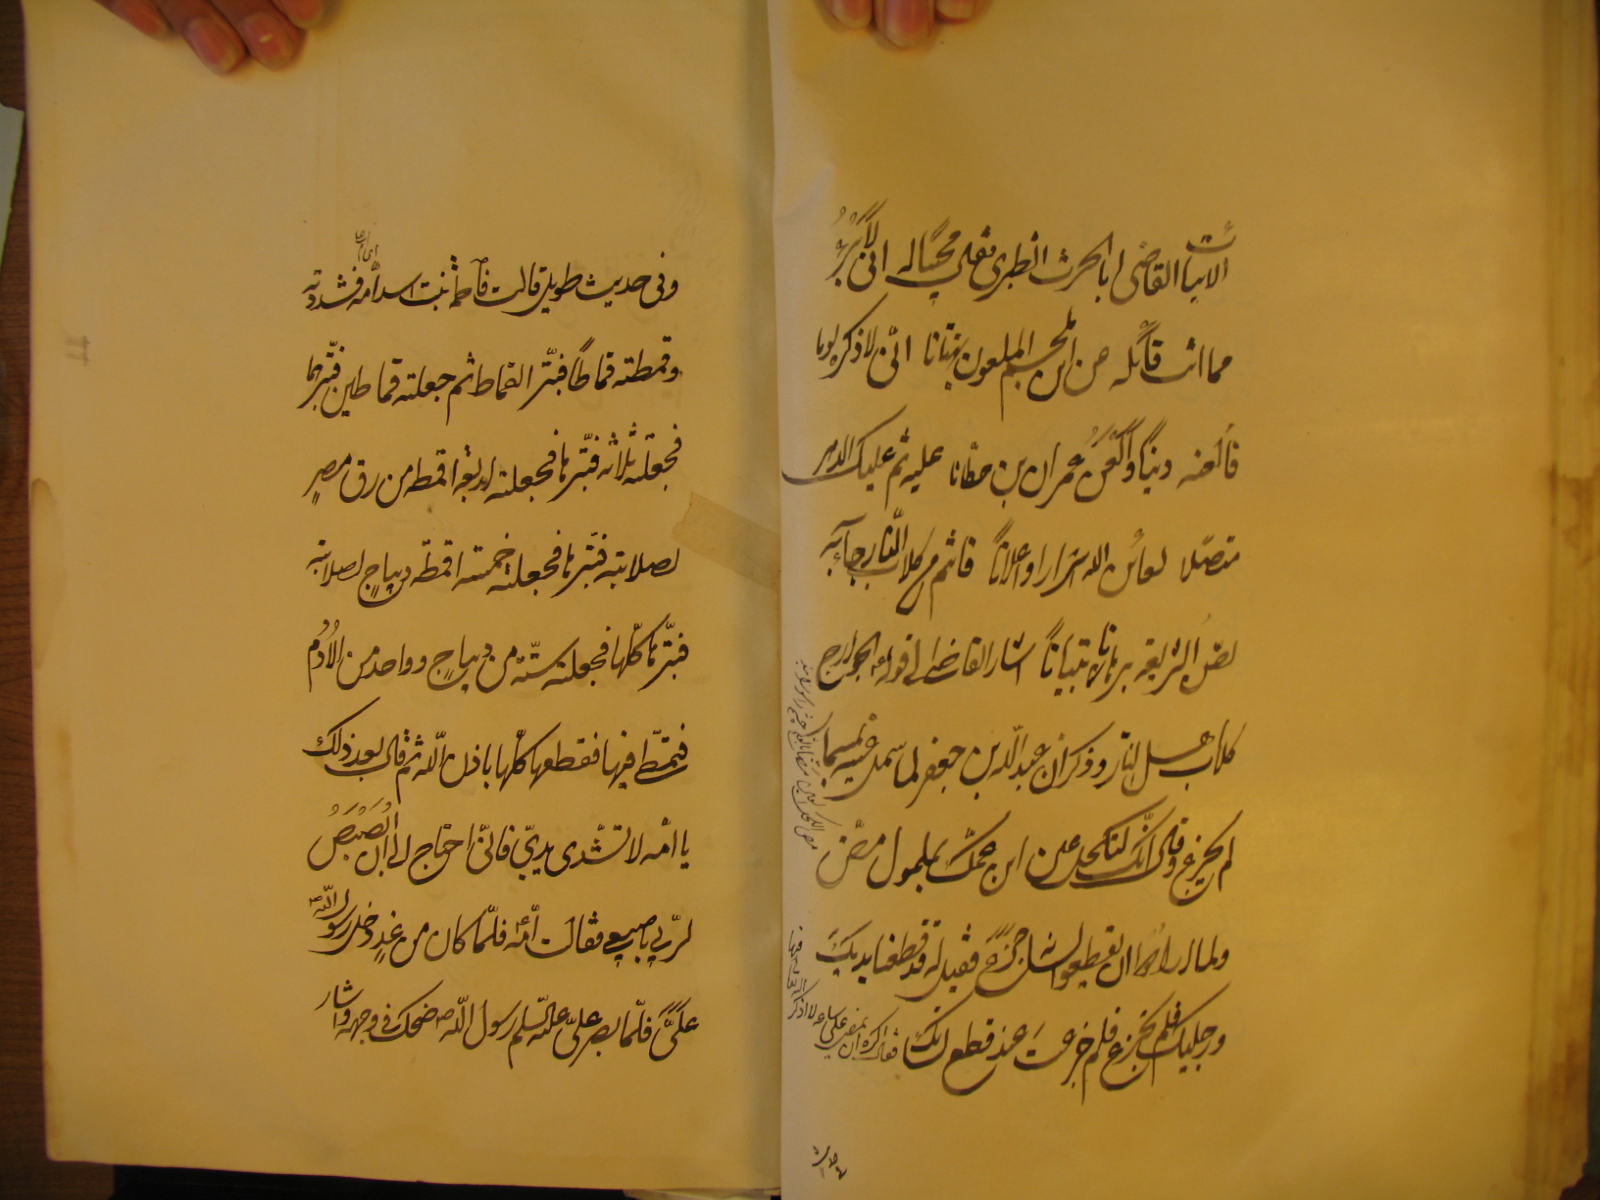 الابيات القاضى ابا الحرث الطبرى فقلى مجيبا له انى لابرء
مما انت قائله عن ابن ملجم الملعون بهتانا انى لاذكره يوما
فالعنه دينا والعن عمران بن حطانا عليه ثم عليك الدهر
متصلا لعائن الله اسرارا واعلانا فانتم من كلاب النار جاء به
نص الشريعة برهانا وتبيانا اشار القاضى الى قوله الخوارج
كلاب اهل النار وذكر ان عبدالله بن جعفر لما سمل عينيه
لم يجزع وقال انك لتكحل عين ابن عمك بملمول مض
ولما ارادوا ان يقطعوا لسانه جزع فقيل له قد قطعنا يديك
ورجليك فلم تجزع فلم جزعت عند قطع لسانك فقال اكره ان تمضى على ساعة لا اذكر
وفى حديث طويل قالت فاطمة بنت اسد امه فشددته
وقمطته قماطا فبتر القماط ثم جعلته قماطين فبترهما
فجعلته ثلاثة فبترها فجعلته اربعة اقمطه من رق مصر
لصلابته فبترها فجعلته خمسة اقمطه ديباج لصلابته
فبترها كلها فجعلته ستة من ديباج وواحد من الادم
فتمطى فيها فقطعها كلها باذن الله ثم قال بعد ذلك
يا امه لا تشدى يدى فانى احتاج الى ان ابصبص
لربى باصبعى فقالت امه فلما كان من غد دخل رسول الله
على فلما بصر على عليه السلم رسول الله ص ضحك فى وجهه واشار